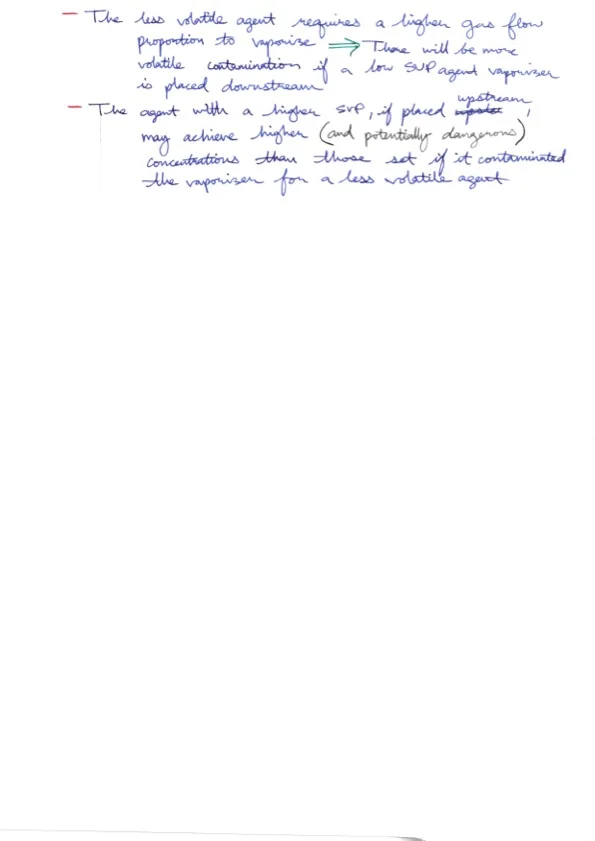 - The less volatile agent requires a higher gas flow
proportion to vaporize ⟹ There will be more
volatile contamination if a low SVP agent vaporizer
is placed downstream
- The agent with a higher SVP, if placed upstream,
may achieve higher (and potentially dangerous)
concentrations than those set if it contaminated
the vaporizer for a less volatile agent